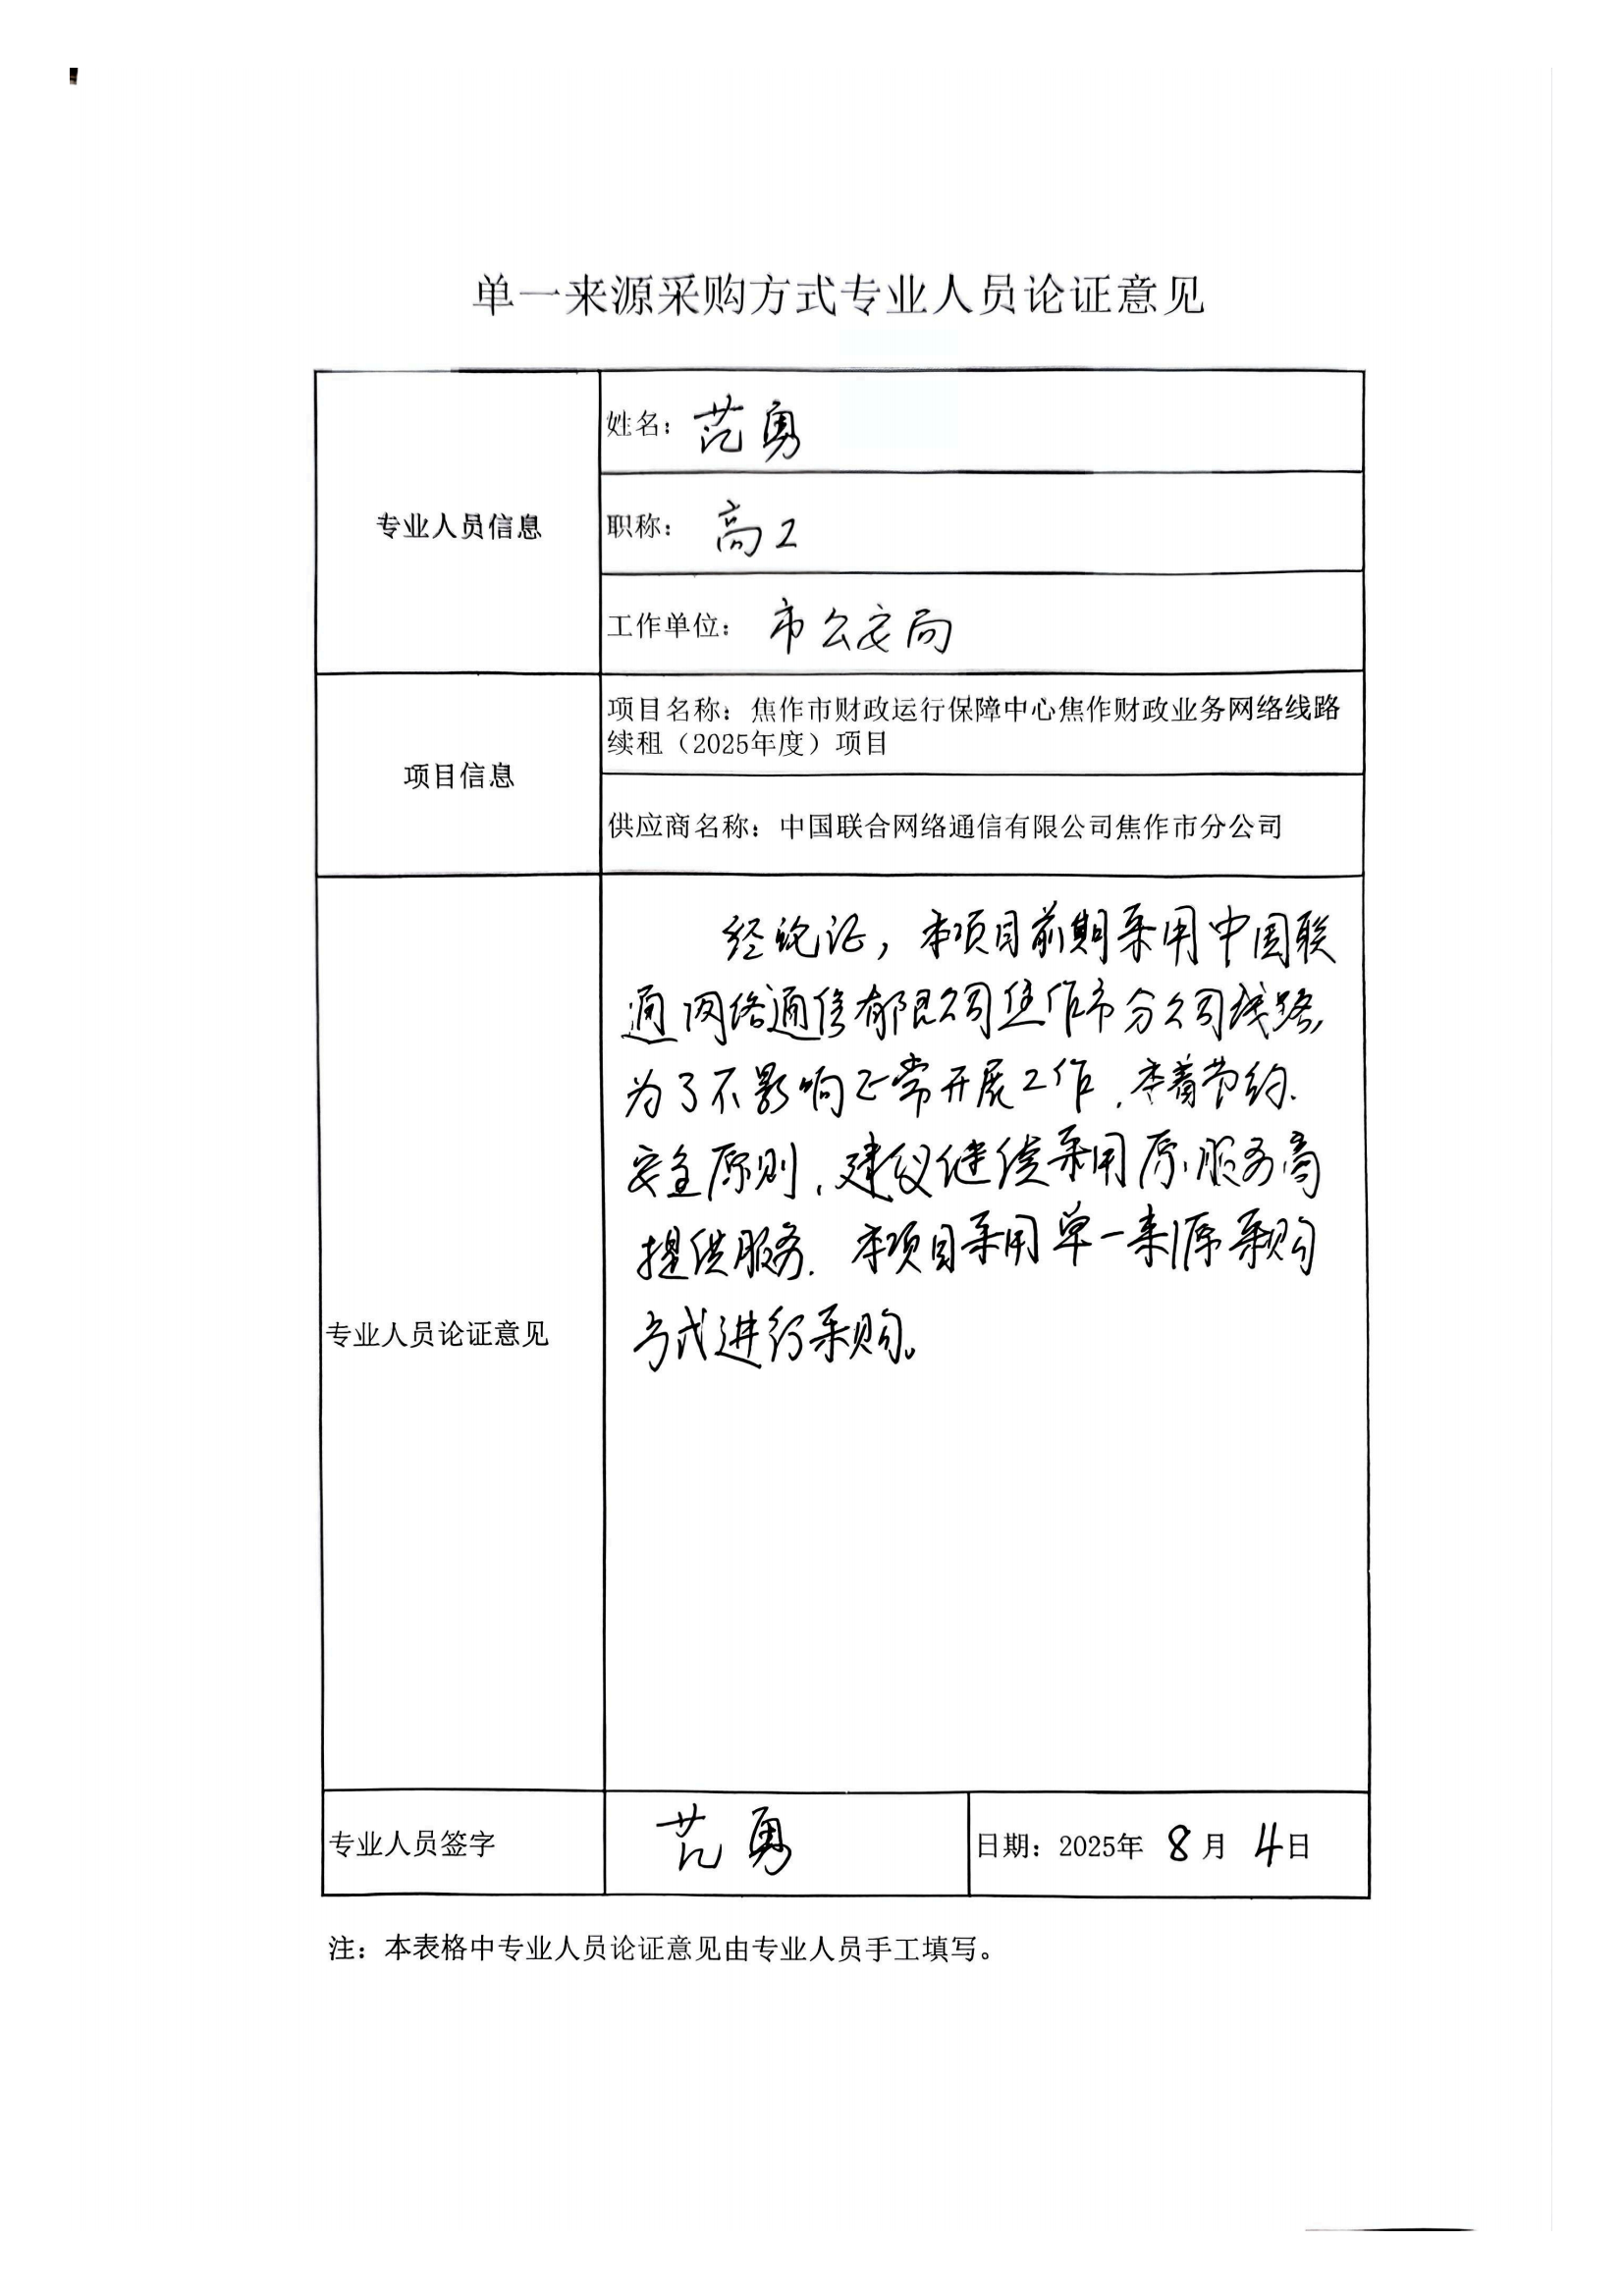 单一来源采购方式专业人员论证意见
专业人员信息
姓名：范勇
职称：高工
工作单位：市公安局
项目信息
项目名称：焦作市财政运行保障中心焦作财政业务网络线路
续租（2025年度）项目
供应商名称：中国联合网络通信有限公司焦作市分公司
专业人员论证意见
经论证，本项目前期采用中国联
通网络通信有限公司焦作市分公司线路，
为了不影响正常开展工作，本着节约、
安全原则，建议继续采用原服务商
提供服务．本项目采用单一来源采购
方式进行采购。
专业人员签字
范勇
日期：2025年8月4日
注：本表格中专业人员论证意见由专业人员手工填写。